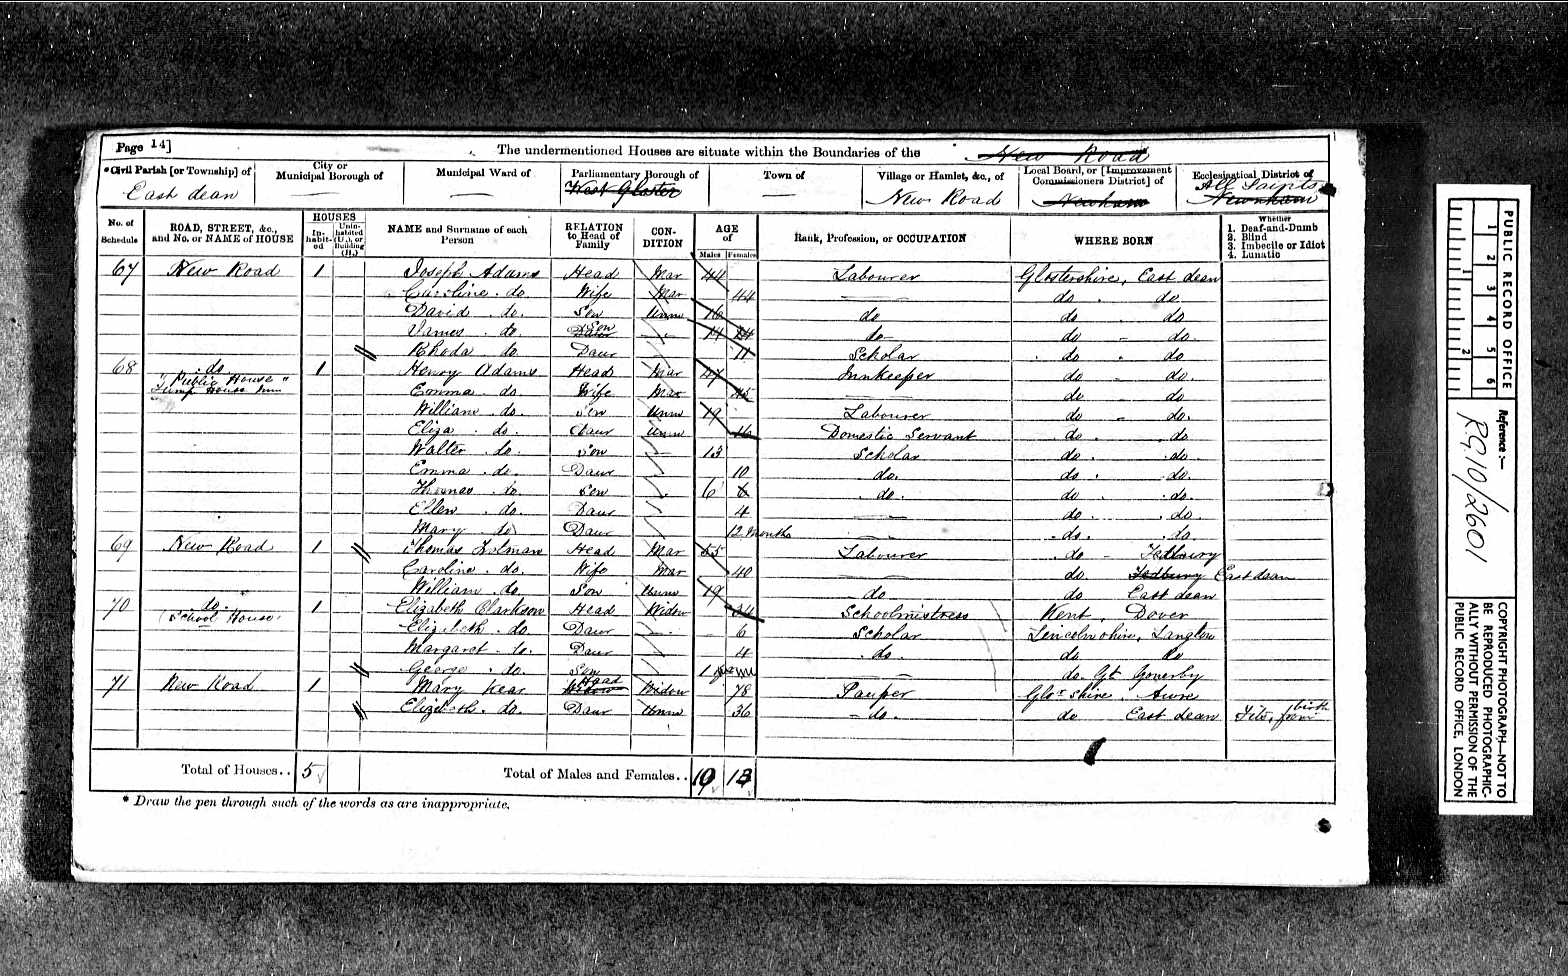 Page 14]
The undermentioned Houses are situate within the Boundaries of the New Road
* Civil Parish [or Township] of
East dean
City or Municipal Borough of
Municipal Ward of
Parliamentary Borough of
West Gloster
Town of
Village or Hamlet, &c., of
New Road
Local Board, or [Improvement Commissioners District] of
Newnham
Ecclesiastical District of
All Saints
Newnham
No. of Schedule
ROAD, STREET, &c., and No. or NAME of HOUSE
HOUSES
Inhabited
Uninhabited (U.), or Building (B.)
NAME and Surname of each Person
RELATION to Head of Family
CONDITION
AGE of
Males
Females
Rank, Profession, or OCCUPATION
WHERE BORN
Whether
1. Deaf-and-Dumb
2. Blind
3. Imbecile or Idiot
4. Lunatic
67 New Road 1 Joseph Adams Head Mar 44 Labourer Glostershire, East dean
Caroline do. Wife Mar 44 do do.
David do. Son Unm 16 do do do
James do. Son Daur 14 14 do do do.
Rhoda do. Daur 11 Scholar do do
68 do "Public House" 1 Henry Adams Head Mar 47 Innkeeper do do.
House Inn Emma do. Wife Mar 45 do do
William do. Son Unm 19 Labourer do do.
Eliza do. Daur Unm 16 Domestic Servant do do
Walter do. Son 13 Scholar do do
Emma do. Daur 10 do. do do.
Thomas do. Son 6 6 do. do do.
Ellen do. Daur 4 do do.
Mary do Daur 12 Months do. do.
69 New Road 1 Thomas Head Mar 55 Labourer do Tedbury
Caroline do. Wife Mar 40 do. Tedbury East dean
William do. Son Unm 19 do do East dean
70 do. (School House) 1 Elizabeth Clarkson Head Widow 34 Schoolmistress Kent, Dover
Elizabeth do. Daur 6 Scholar Lincolnshire, Langton
Margaret do. Daur 4 do. do do
George do. Son 1 do. Gt Gonerby
71 New Road 1 Mary Kear Head Widow Widow 78 Pauper Glos'shire Awre
Elizabeth do. Daur Unm 36 do. do East dean Fits, from birth
Total of Houses.. 5
Total of Males and Females.. 10 13
* Draw the pen through such of the words as are inappropriate.
PUBLIC RECORD OFFICE
1 2 3 4 5 6
1 2
Reference :-
RG10/2601
COPYRIGHT PHOTOGRAPH—NOT TO BE REPRODUCED PHOTOGRAPHICALLY WITHOUT PERMISSION OF THE PUBLIC RECORD OFFICE, LONDON